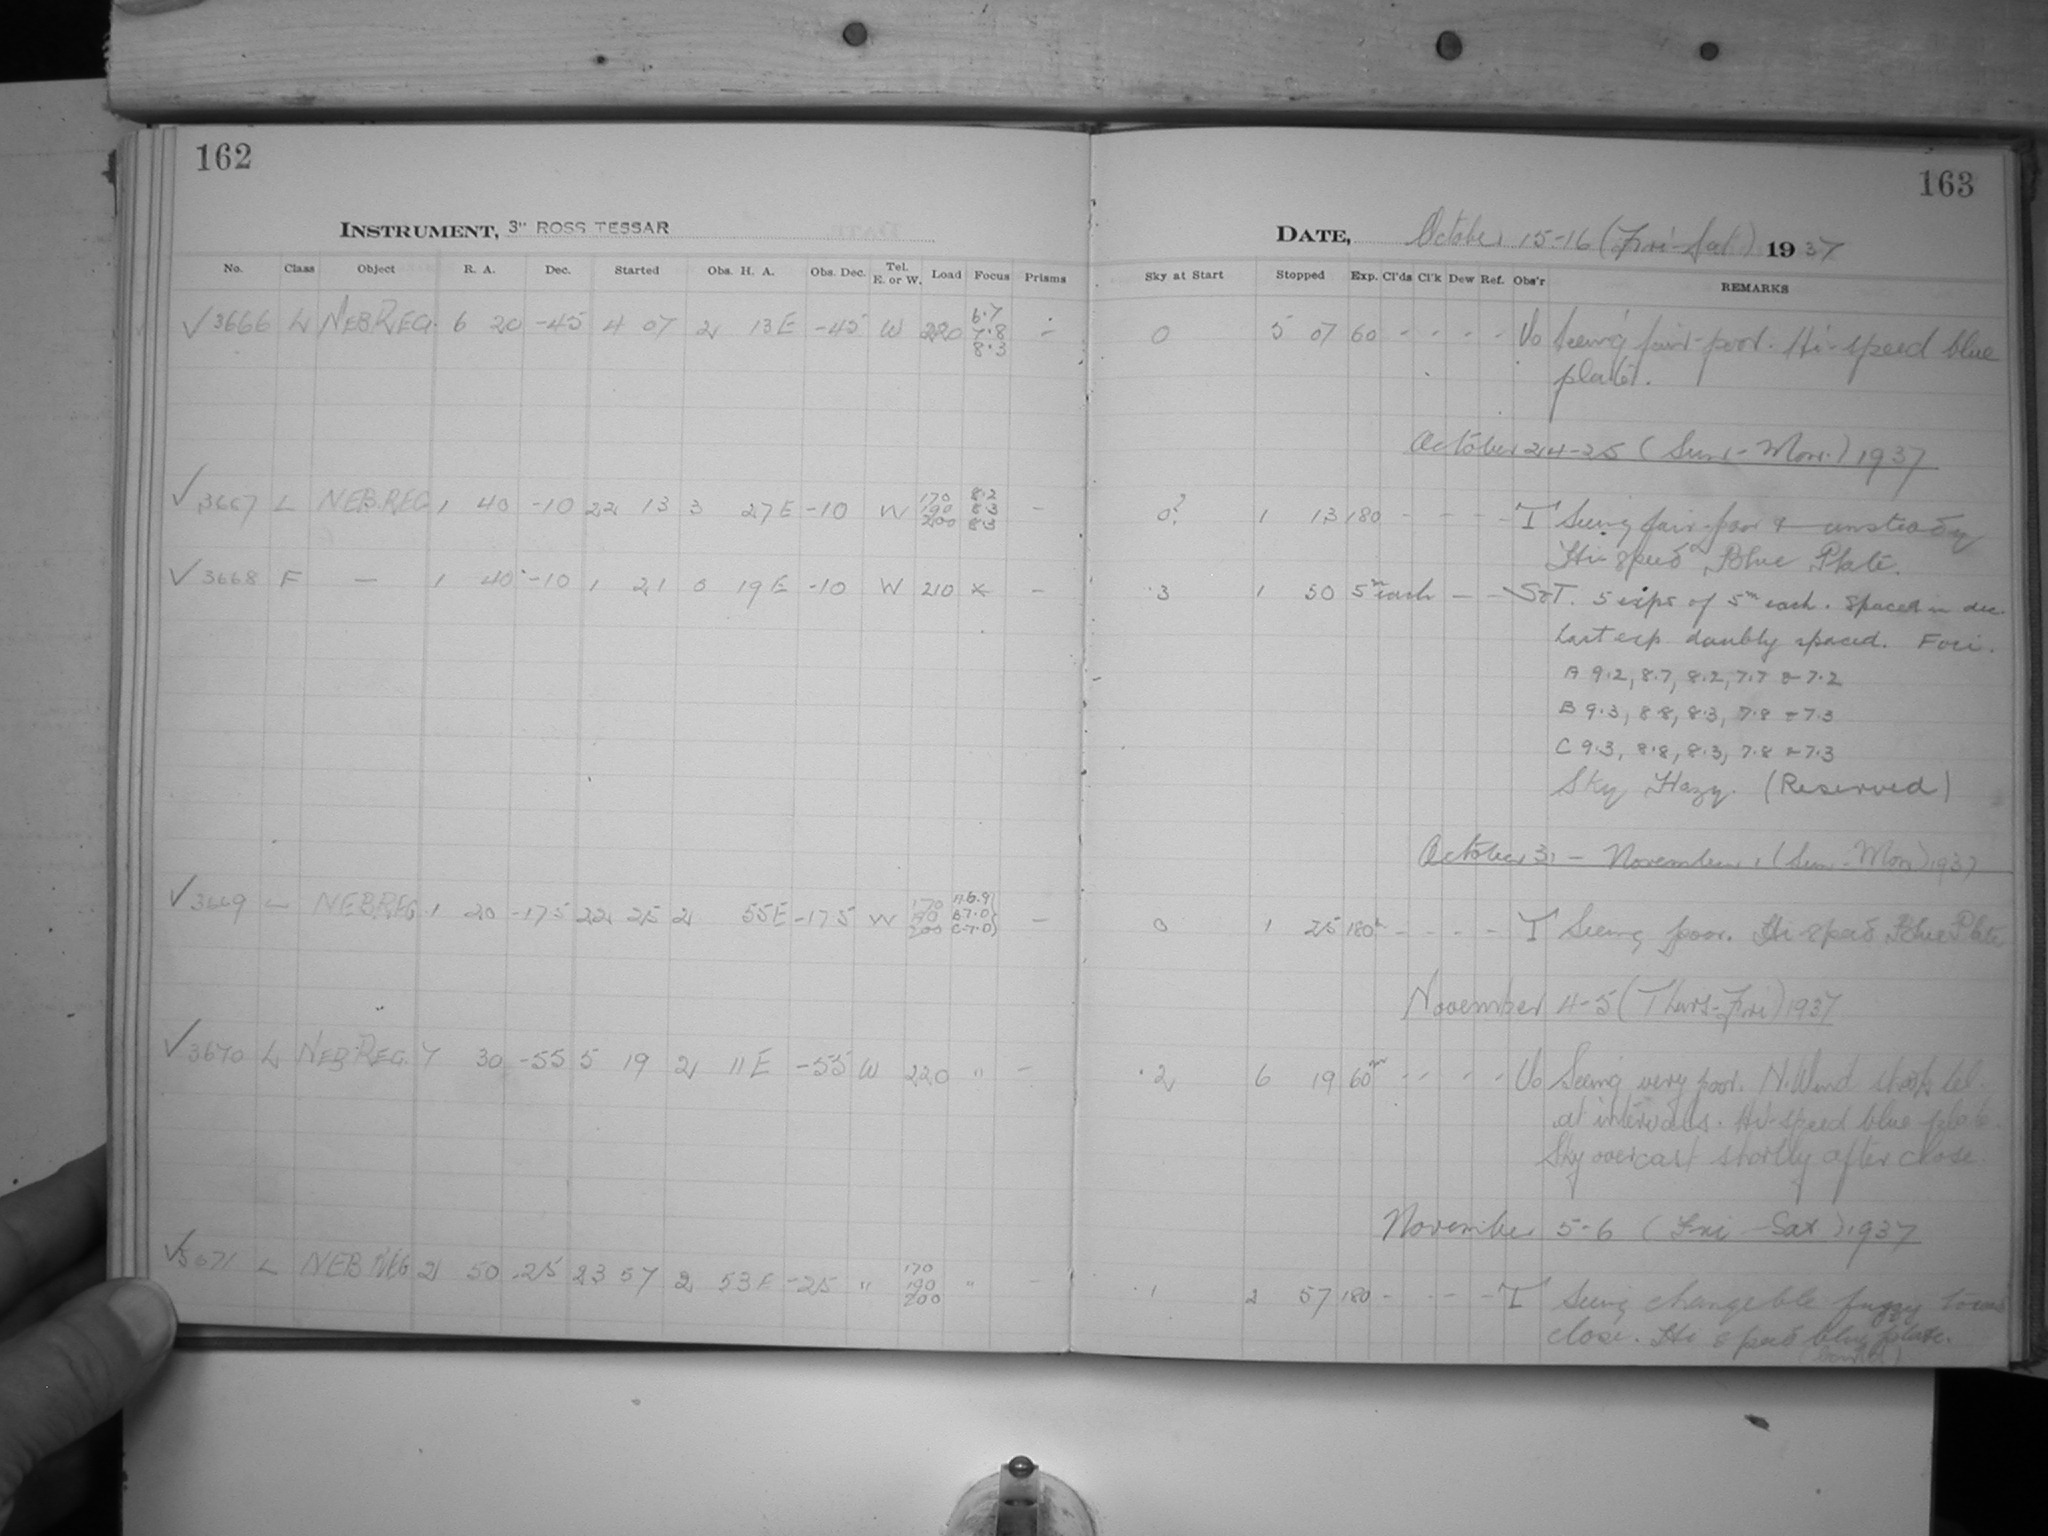 162
INSTRUMENT, 3" ROSS TESSAR
No. Class Object R. A. Dec. Started Obs. H. A. Obs. Dec. Tel. E. or W. Load Focus Prisms
✓3666 L NEB.REG. 6 20 -45 4 07 2 13E -45 W 220 6.7 7.8 8.3 -
✓3667 L NEB.REG 1 40 -10 22 13 3 27E -10 W 170 190 200 8.2 8.3 8.3 -
✓3668 F — 1 40 -10 1 21 0 19E -10 W 210 x -
✓3669 L NEB.REG. 1 20 -17.5 22 25 2 55E -17.5 W 170 190 200 A 6.9 B 7.0 C 7.0 -
✓3670 L NEB.REG. 7 30 -55 5 19 2 11E -55 W 220 " -
✓3671 L NEB REG 2 50 -25 23 57 2 53E -25 " 170 190 200 " -
163
DATE, October 15-16 (Fri-Sat) 1937
Sky at Start Stopped Exp. Cl'ds Cl'k Dew Ref. Obs'r REMARKS
0 5 07 60 - - - - Vo Seeing fair-poor. Hi-speed blue
plate.
October 24-25 (Sun-Mon.) 1937
0? 1 13 180 - - - - T Seeing fair-poor & unsteady
Hi-speed Blue Plate.
.3 1 50 5m each - - S&T. 5 exps of 5m each. Spaced in dec.
Last exp doubly spaced. Foci.
A 9.2, 8.7, 8.2, 7.7 & 7.2
B 9.3, 8.8, 8.3, 7.8 & 7.3
C 9.3, 8.8, 8.3, 7.8 & 7.3
Sky Hazy. (Reserved)
October 31 - November 1 (Sun-Mon) 1937
0 1 25 180 - - - - T Seeing poor. Hi speed Blue Plate
November 4-5 (Thurs-Fri) 1937
.2 6 19 60m - - - - Vo Seeing very poor. N. Wind shook tel.
at intervals. Hi-speed blue plate.
Sky overcast shortly after close.
November 5-6 (Fri-Sat) 1937
.1 2 57 180 - - - - T Seeing changeble fuzzy towards
close. Hi speed blue plate.